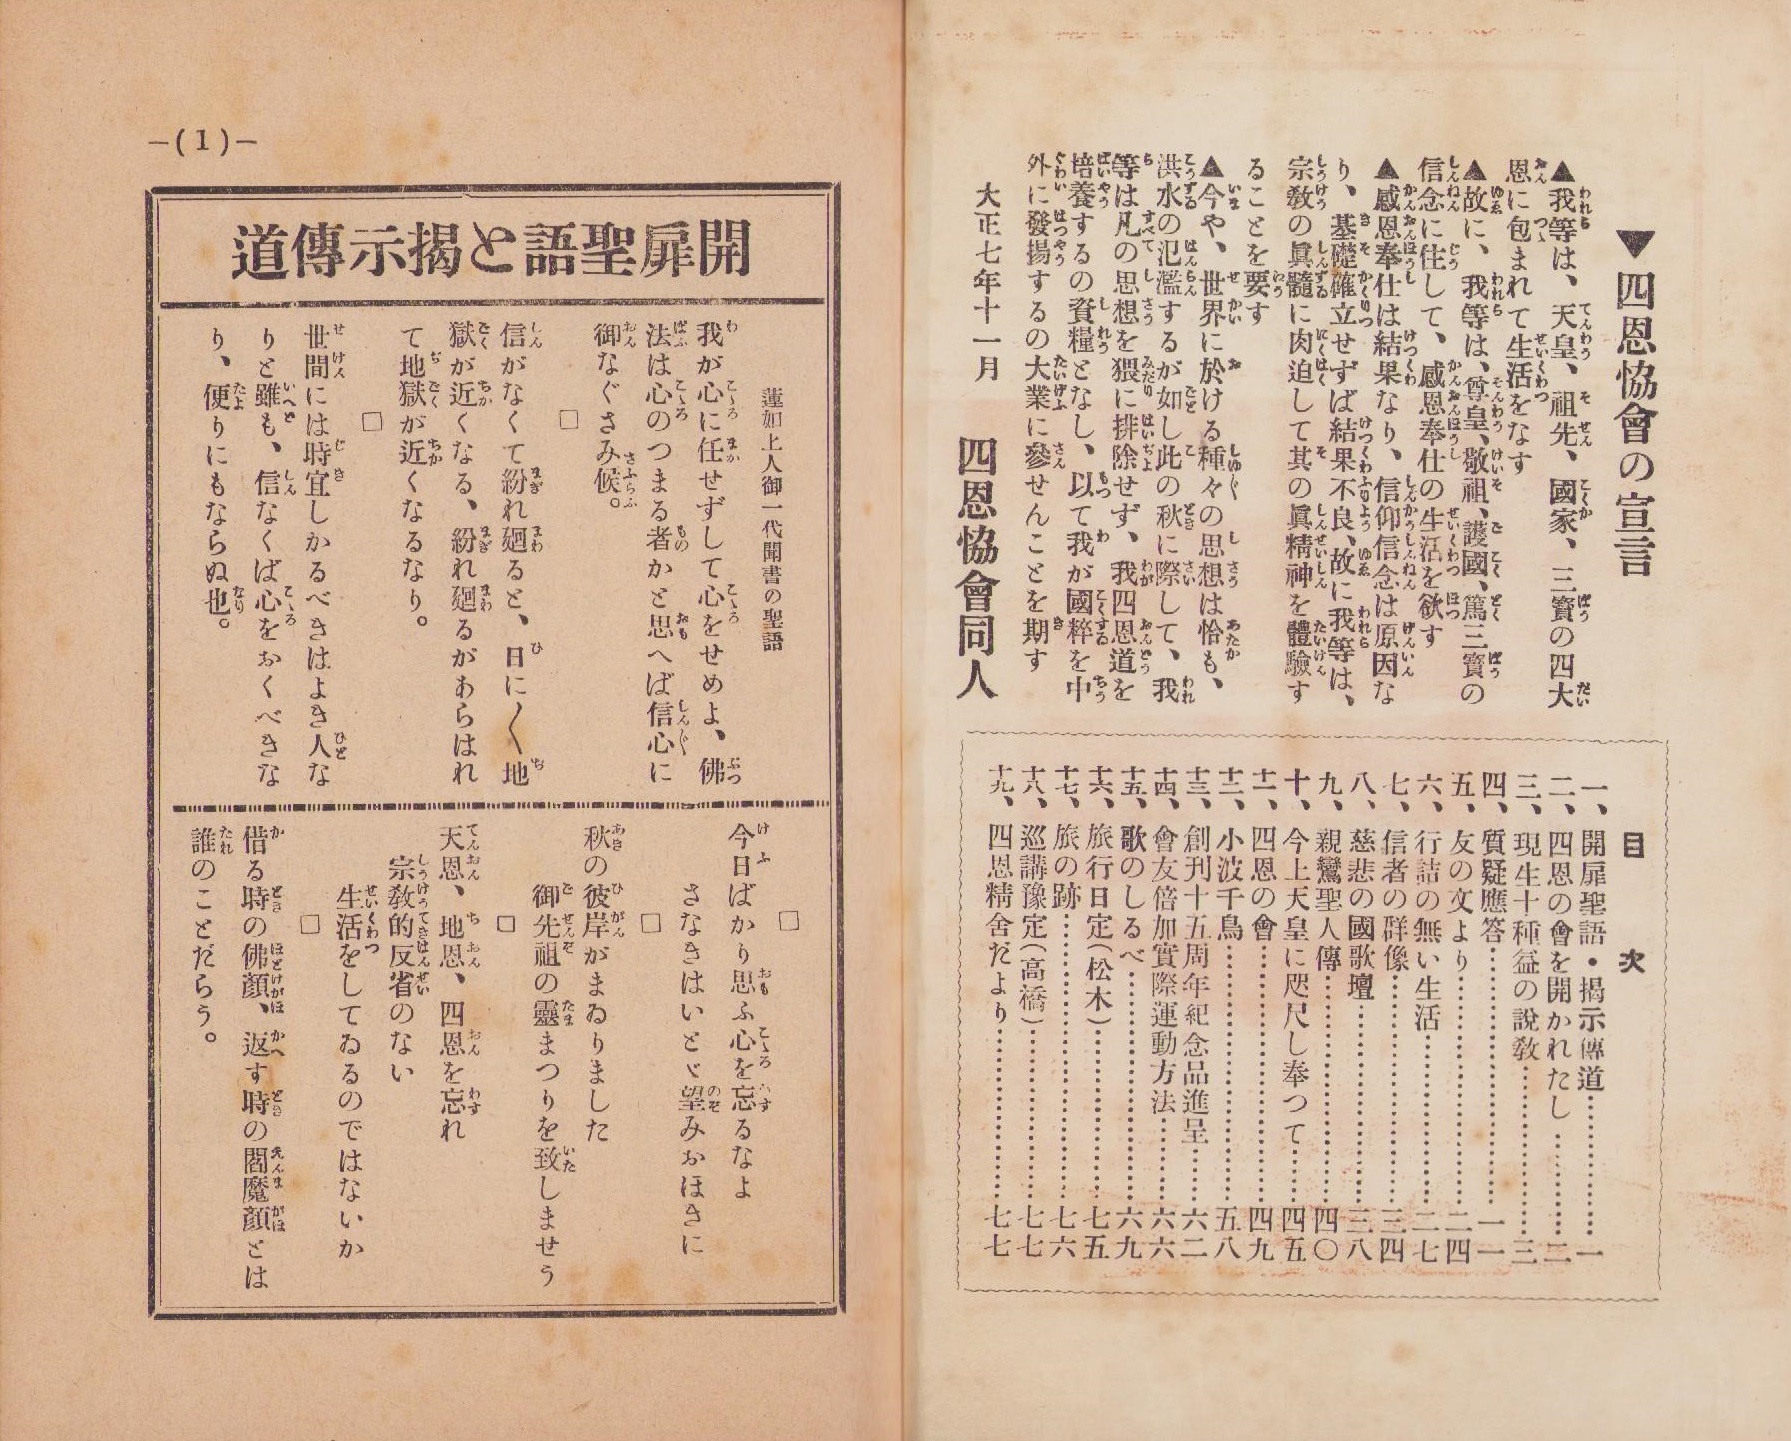 ▼四恩恊會の宣言
▲我等は、天皇、祖先、國家、三寳の四大
恩に包まれて生活をなす
▲故に、我等は、尊皇、敬祖、護國、篤三寳の
信念に住して、感恩奉仕の生活を欲す
▲感恩奉仕は結果なり、信仰信念は原因な
り、基礎確立せずば結果不良、故に我等は、
宗敎の眞髓に肉迫して其の眞精神を體驗す
ることを要す
▲今や、世界に於ける種々の思想は恰も、
洪水の氾濫するが如し此の秋に際して、我
等は凡の思想を猥に排除せず、我四恩道を
培養するの資糧となし、以て我が國粹を中
外に發揚するの大業に參せんことを期す
大正七年十一月　四恩恊會同人
目次
一、開扉聖語・揭示傳道…………一
二、四恩の會を開かれたし…………二
三、現生十種益の說敎…………三
四、質疑應答…………一一
五、友の文より…………二四
六、行詰の無い生活…………二七
七、信者の群像…………三四
八、慈悲の國歌壇…………三八
九、親鸞聖人傳…………四〇
十、今上天皇に咫尺し奉つて…………四五
十一、四恩の會…………四九
十二、小波千鳥…………五八
十三、創刊十五周年紀念品進呈…………六二
十四、會友倍加實際運動方法…………六六
十五、歌のしるべ…………六九
十六、旅行日定(松木)…………七五
十七、旅の跡…………七六
十八、巡講豫定(高橋)…………七七
十九、四恩精舍だより…………七七
―(1)―
開扉聖語と揭示傳道
蓮如上人御一代聞書の聖語
我が心に任せずして心をせめよ、佛
法は心のつまる者かと思へば信心に
御なぐさみ候。
□
信がなくて紛れ廻ると、日に〱地
獄が近くなる、紛れ廻るがあらはれ
て地獄が近くなるなり。
□
世間には時宜しかるべきはよき人な
りと雖も、信なくば心をおくべきな
り、便りにもならぬ也。
□
今日ばかり思ふ心を忘るなよ
さなきはいとゞ望みおほきに
□
秋の彼岸がまゐりました
御先祖の靈まつりを致しませう
□
天恩、地恩、四恩を忘れ
宗敎的反省のない
生活をしてゐるのではないか
□
借る時の佛顏、返す時の閻魔顏とは
誰のことだらう。